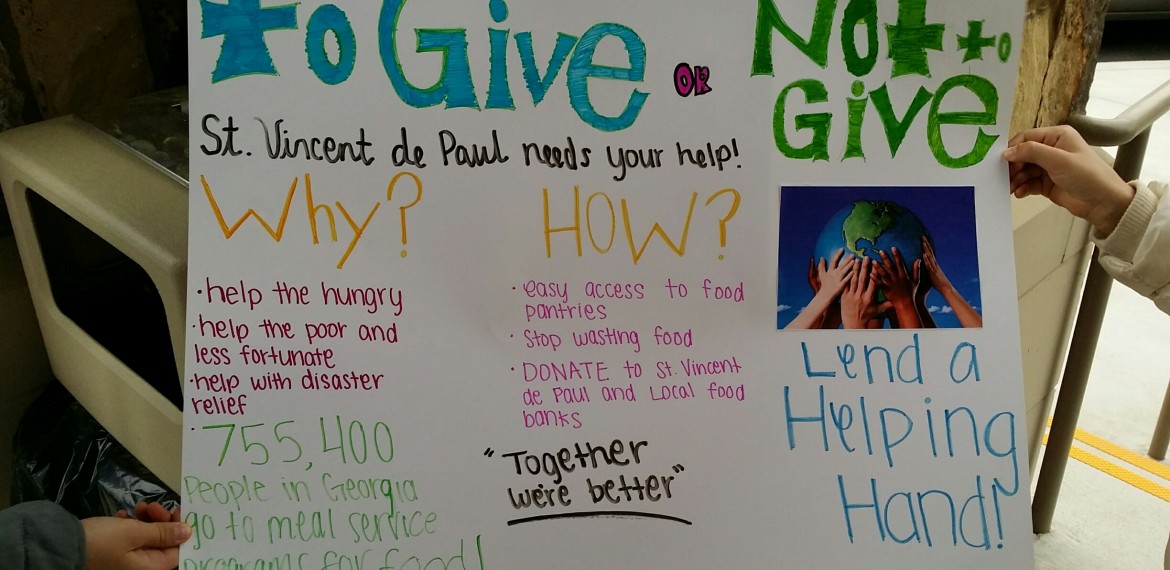 to Give OR Not to
Give
St. Vincent de Paul needs your help!
Why?
·help the hungry
·help the poor and
less fortunate
·help with disaster
relief
·755,400
People in Georgia
go to meal service
programs for food!
HOW?
·easy access to food
pantries
·Stop wasting food
·DONATE to St. Vincent
de Paul and Local food
banks
"Together
we're better"
Lend a
Helping
Hand!